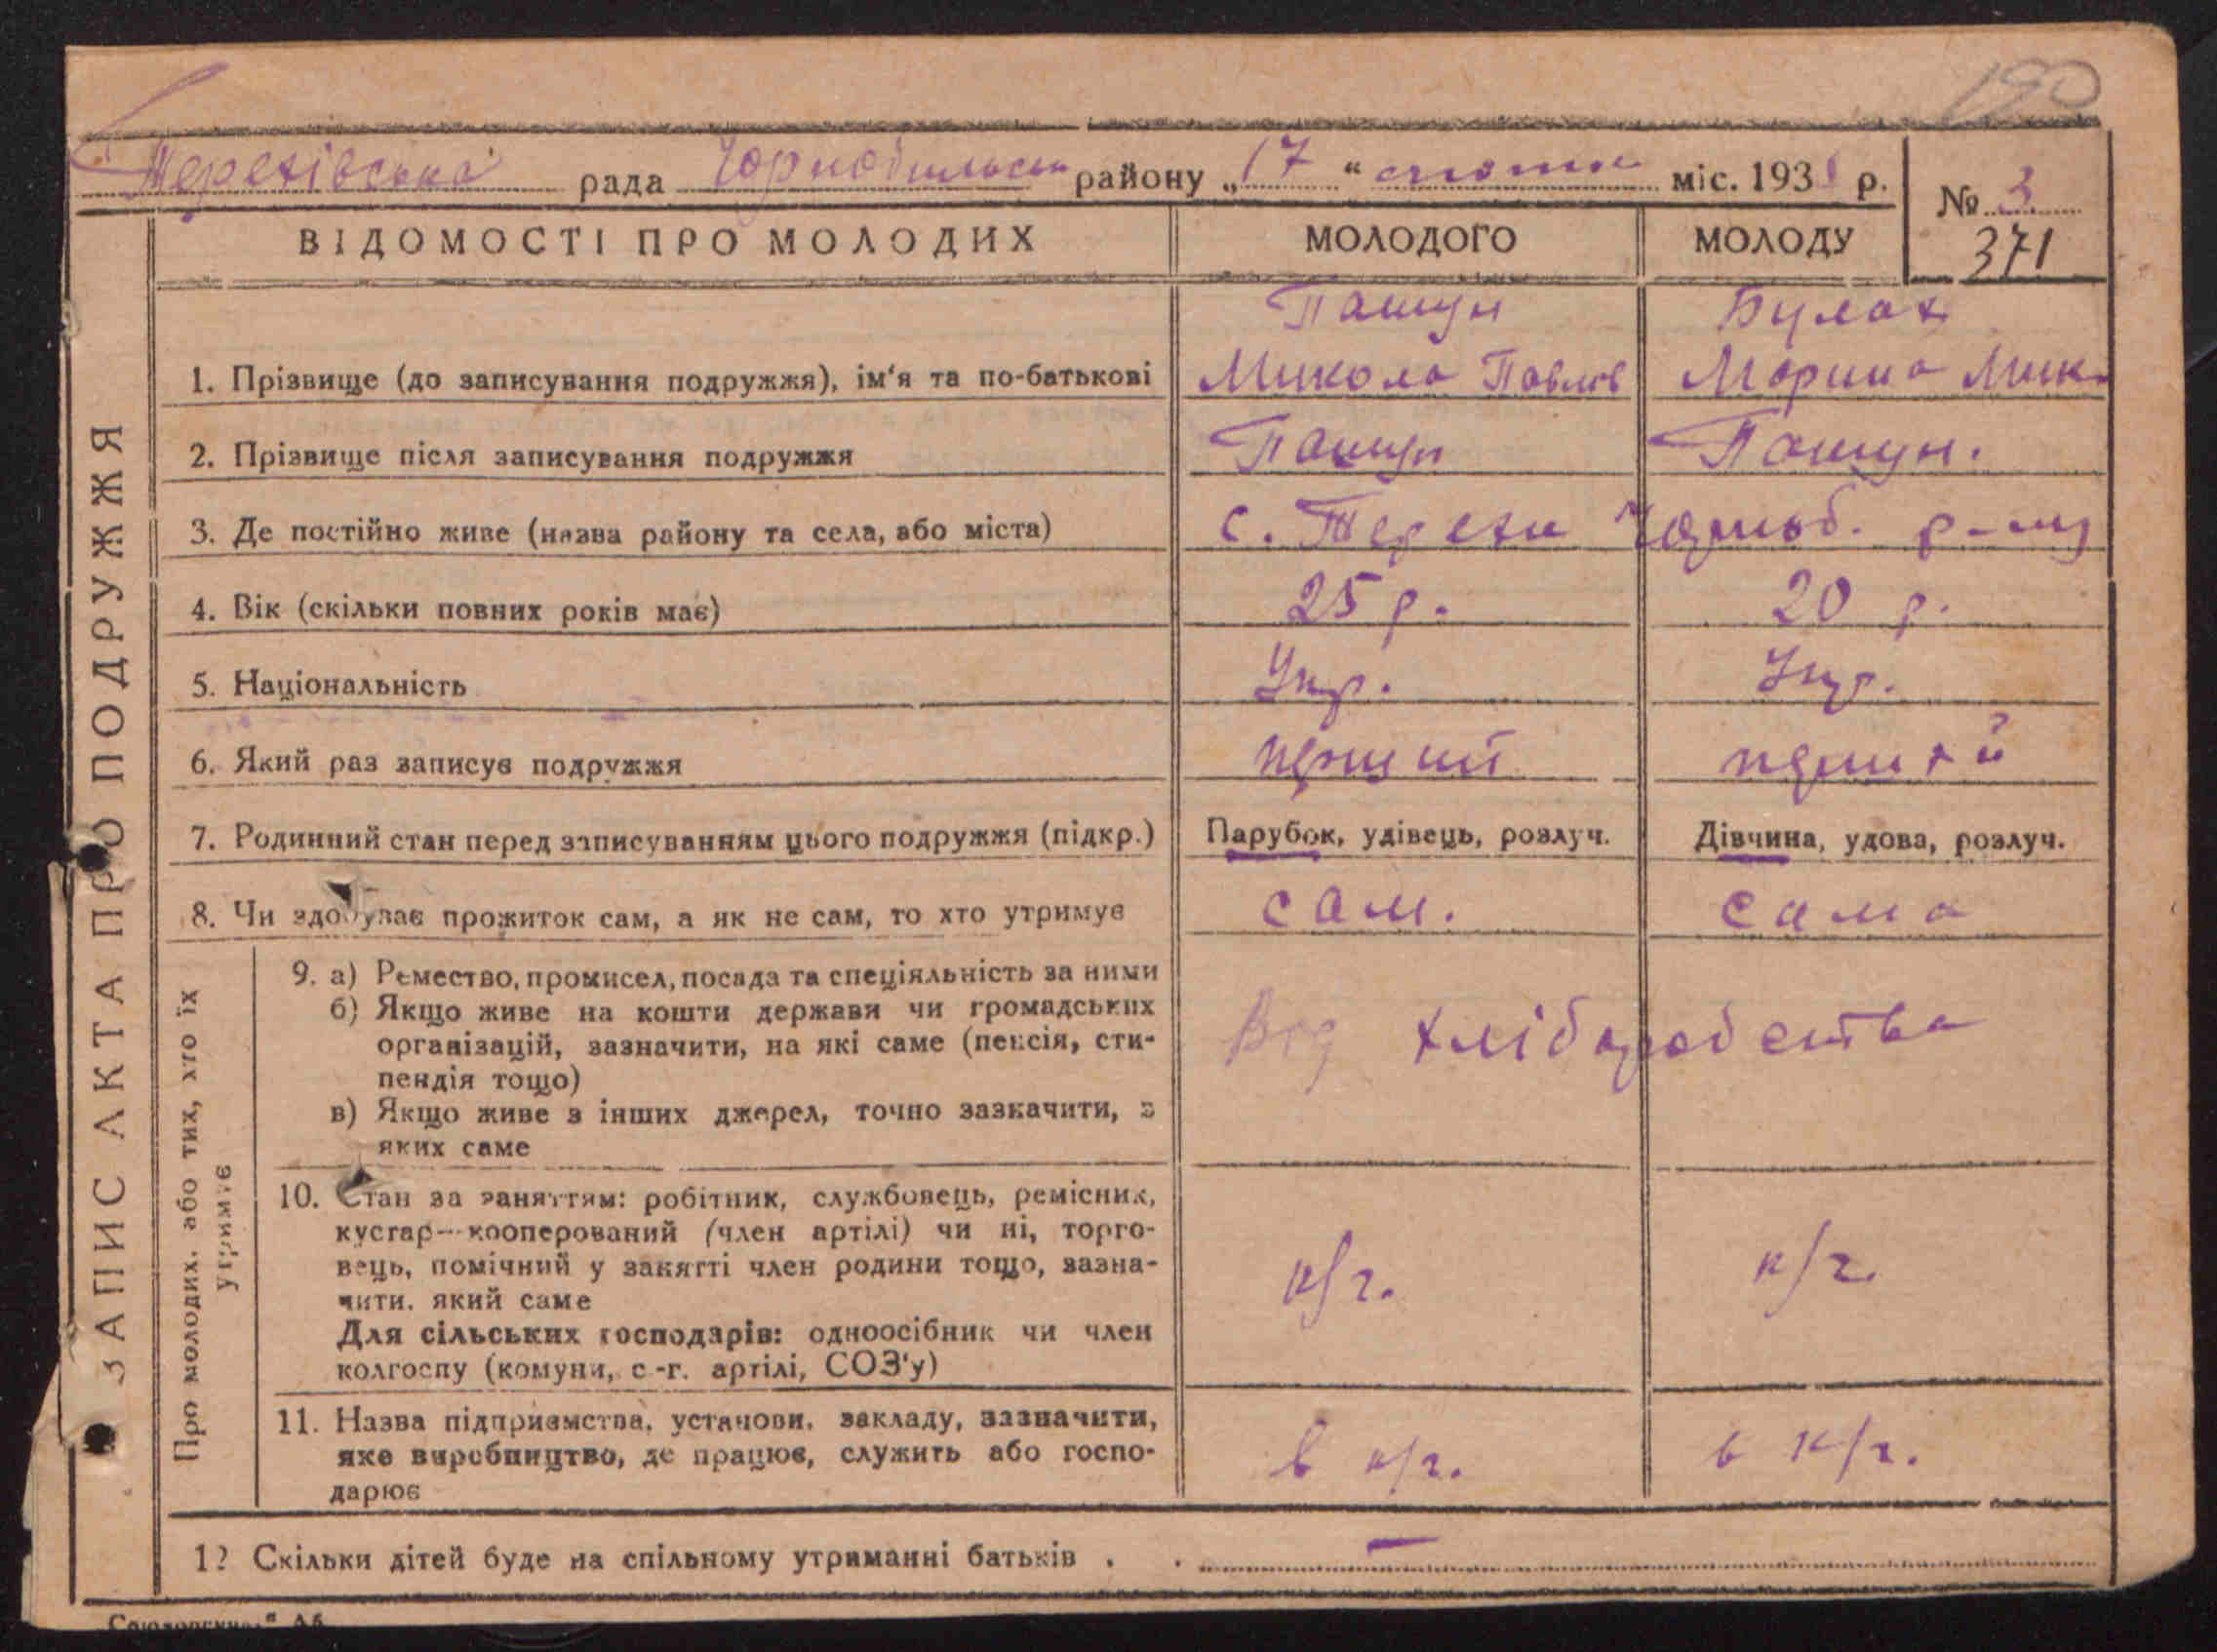 190
Терехівська рада Чорнобильськ району „ 17 “ лютого міс. 193 р.
№ 3
371
ВІДОМОСТІ ПРО МОЛОДИХ МОЛОДОГО МОЛОДУ
Пашун Булах
1. Прізвище (до записування подружжя), ім'я та по-батькові Микола Павлов Марина Мик.
2. Прізвище після записування подружжя Пашун Пашун.
3. Де постійно живе (назва району та села, або міста) с. Терехи Чорноб. р-ну
4. Вік (скільки повних років має) 25 р. 20 р.
5. Національність Укр. Укр.
6. Який раз записує подружжя перший перший
7. Родинний стан перед записуванням цього подружжя (підкр.) Парубок, удівець, розлуч. Дівчина, удова, розлуч.
8. Чи здобуває прожиток сам, а як не сам, то хто утримує сам. сама
9. а) Ремество, промисел, посада та спеціяльність за ними
б) Якщо живе на кошти держави чи громадських
організацій, зазначити, на які саме (пенсія, сти-
пендія тощо)
в) Якщо живе з інших джерел, точно зазначити, з
яких саме
Від хліборобства
10. Стан за заняттям: робітник, службовець, ремісник,
кустар—кооперований (член артілі) чи ні, торго-
вець, помічний у занятті член родини тощо, зазна-
чити, який саме
Для сільських господарів: одноосібник чи член
колгоспу (комуни, с.-г. артілі, СОЗ'у)
к/г. к/г.
11. Назва підприємства, установи, закладу, зазначити,
яке виробництво, де працює, служить або госпо-
дарює
в к/г. в к/г.
12 Скільки дітей буде на спільному утриманні батьків . . —
ЗАПИС АКТА ПРО ПОДРУЖЖЯ
Про молодих, або тих, хто їх
утримує